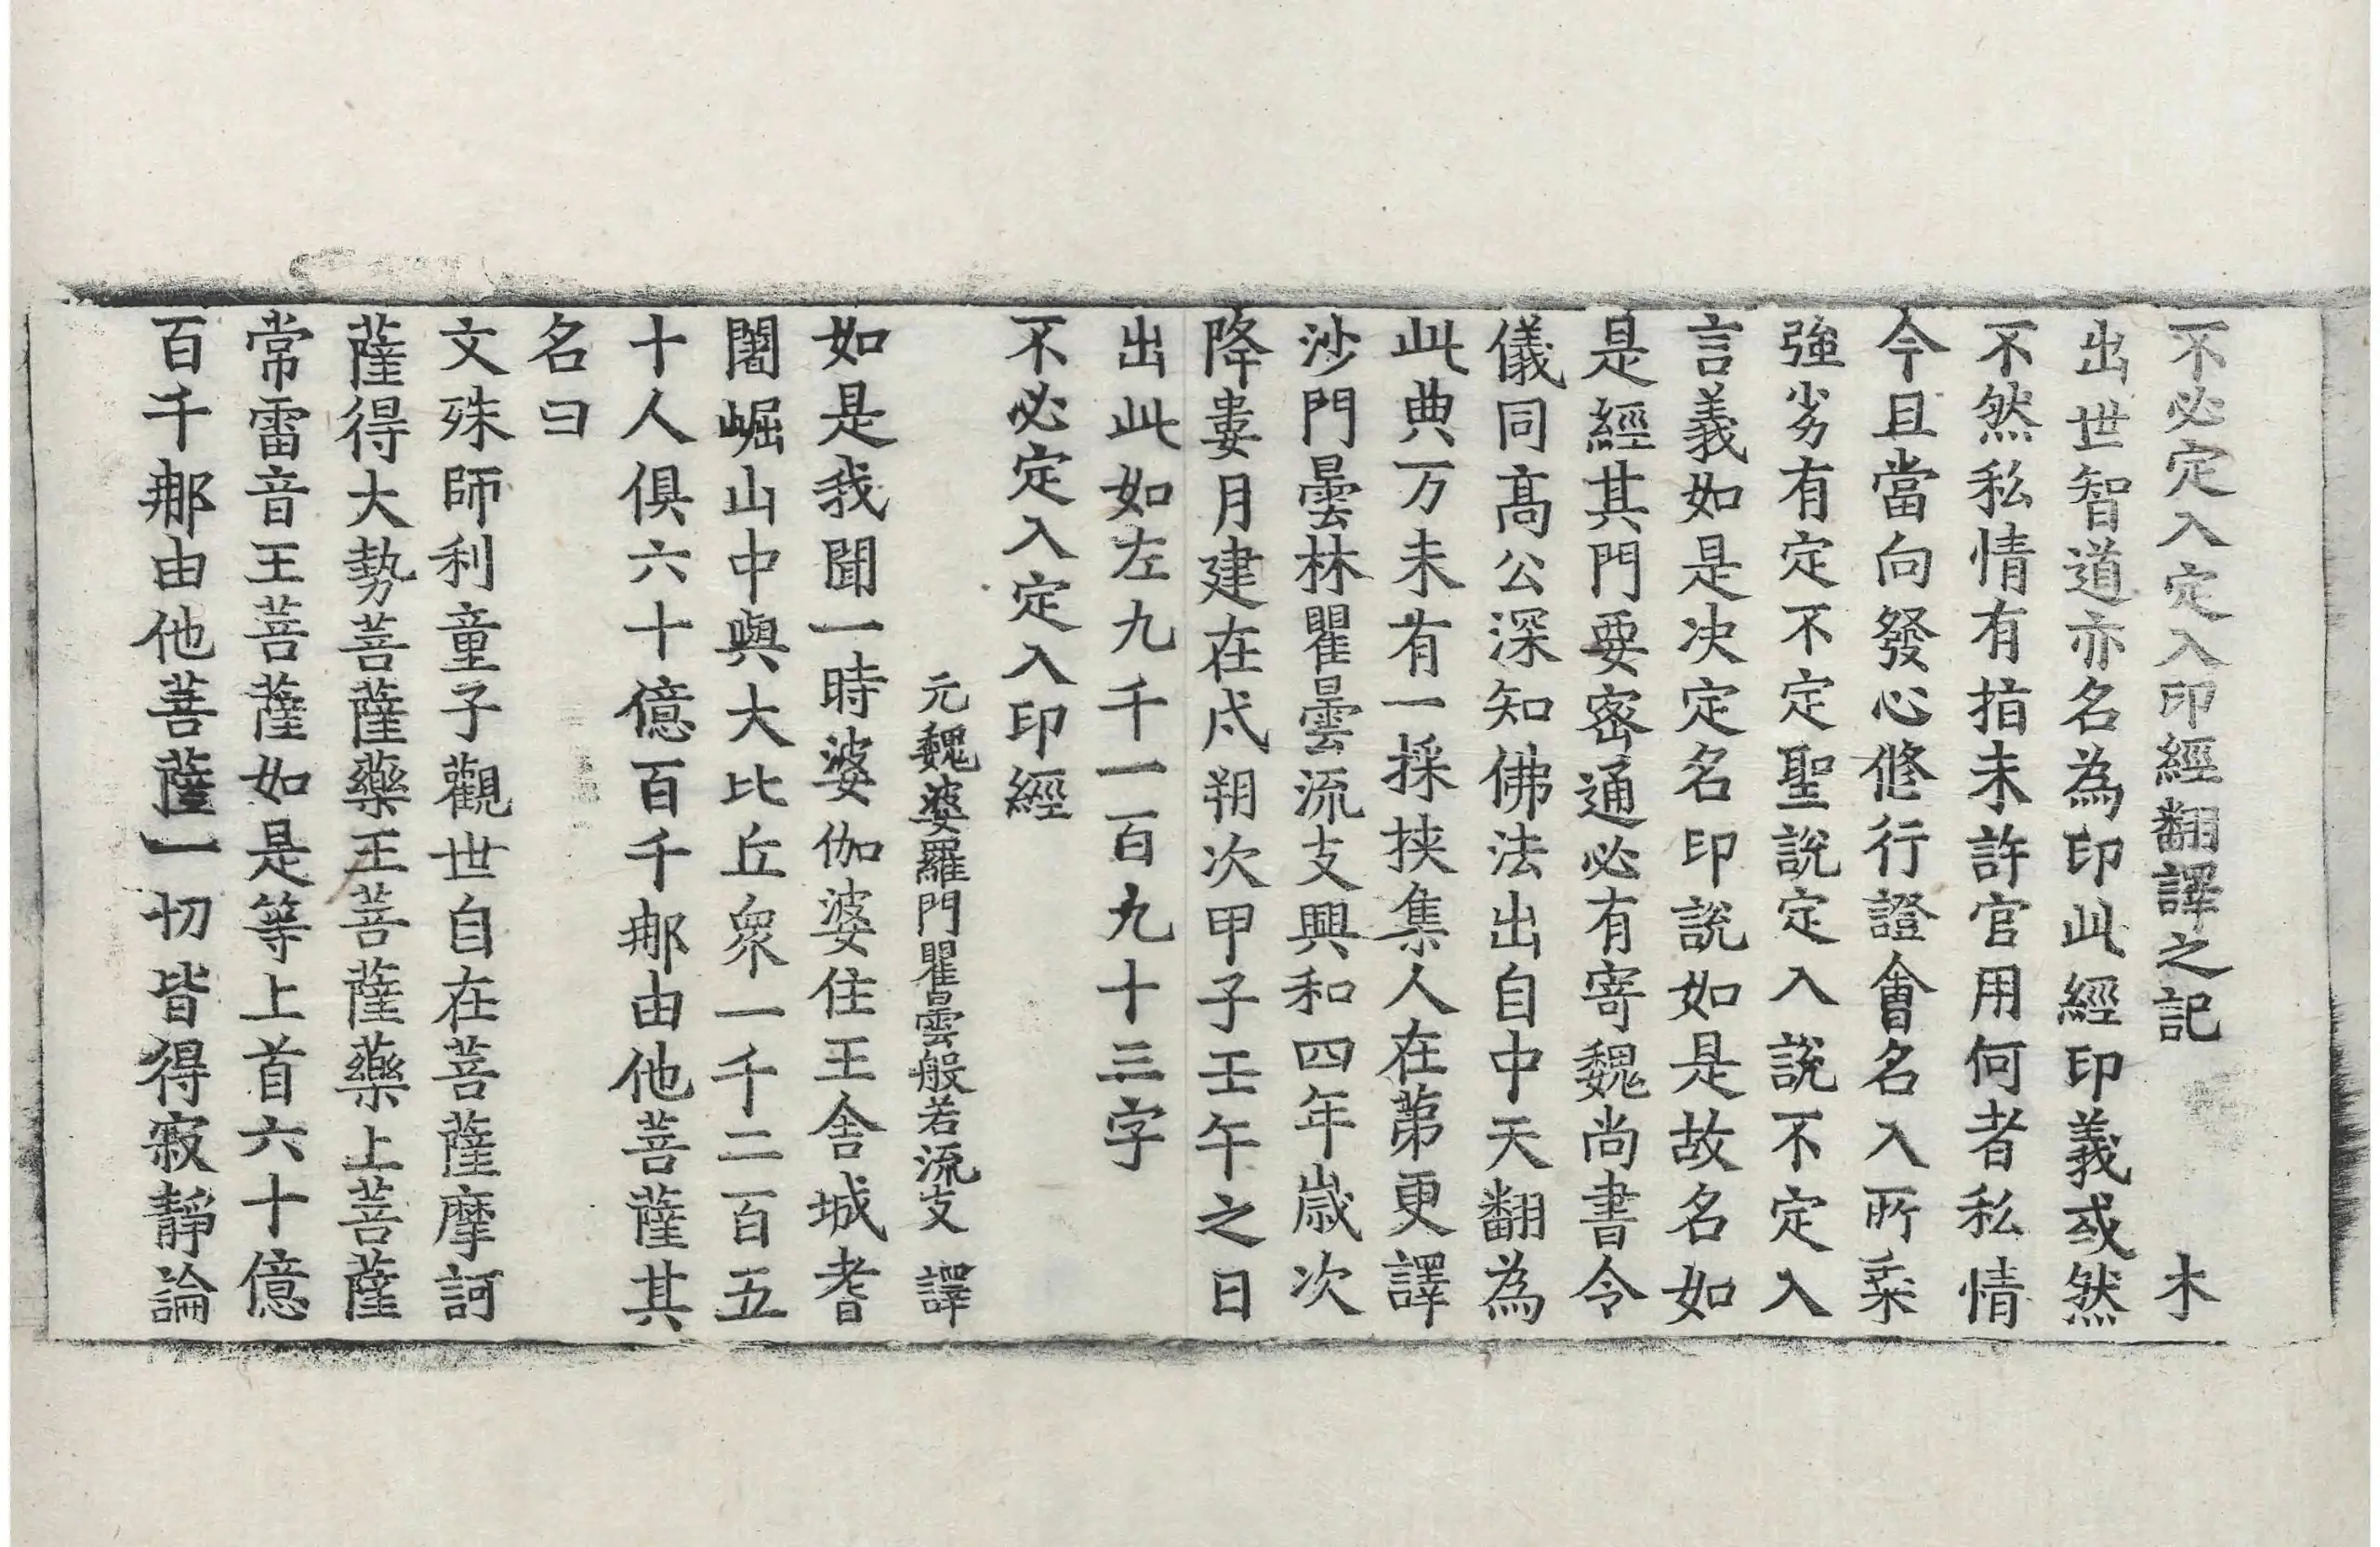 不必定入定入印經翻譯之記 木
出世智道亦名為印此經印義或然
不然私情有指未許官用何者私情
今且當向發心修行證會名入所乘
強劣有定不定聖說定入說不定入
言義如是決定名印說如是故名如
是經其門要密通必有寄魏尚書令
儀同髙公深知佛法出自中天翻為
此典万未有一採挾集人在苐更譯
沙門曇林瞿曇流支興和四年歲次
降婁月建在戌朔次甲子壬午之日
出此如左九千一百九十三字
不必定入定入印經
元魏婆羅門瞿曇般若流支 譯
如是我聞一時婆伽婆住王舍城耆
闍崛山中與大比丘眾一千二百五
十人俱六十億百千那由他菩薩其
名曰
文殊師利童子觀世自在菩薩摩訶
薩得大勢菩薩藥王菩薩藥上菩薩
常雷音王菩薩如是等上首六十億
百千那由他菩薩一切皆得寂靜論